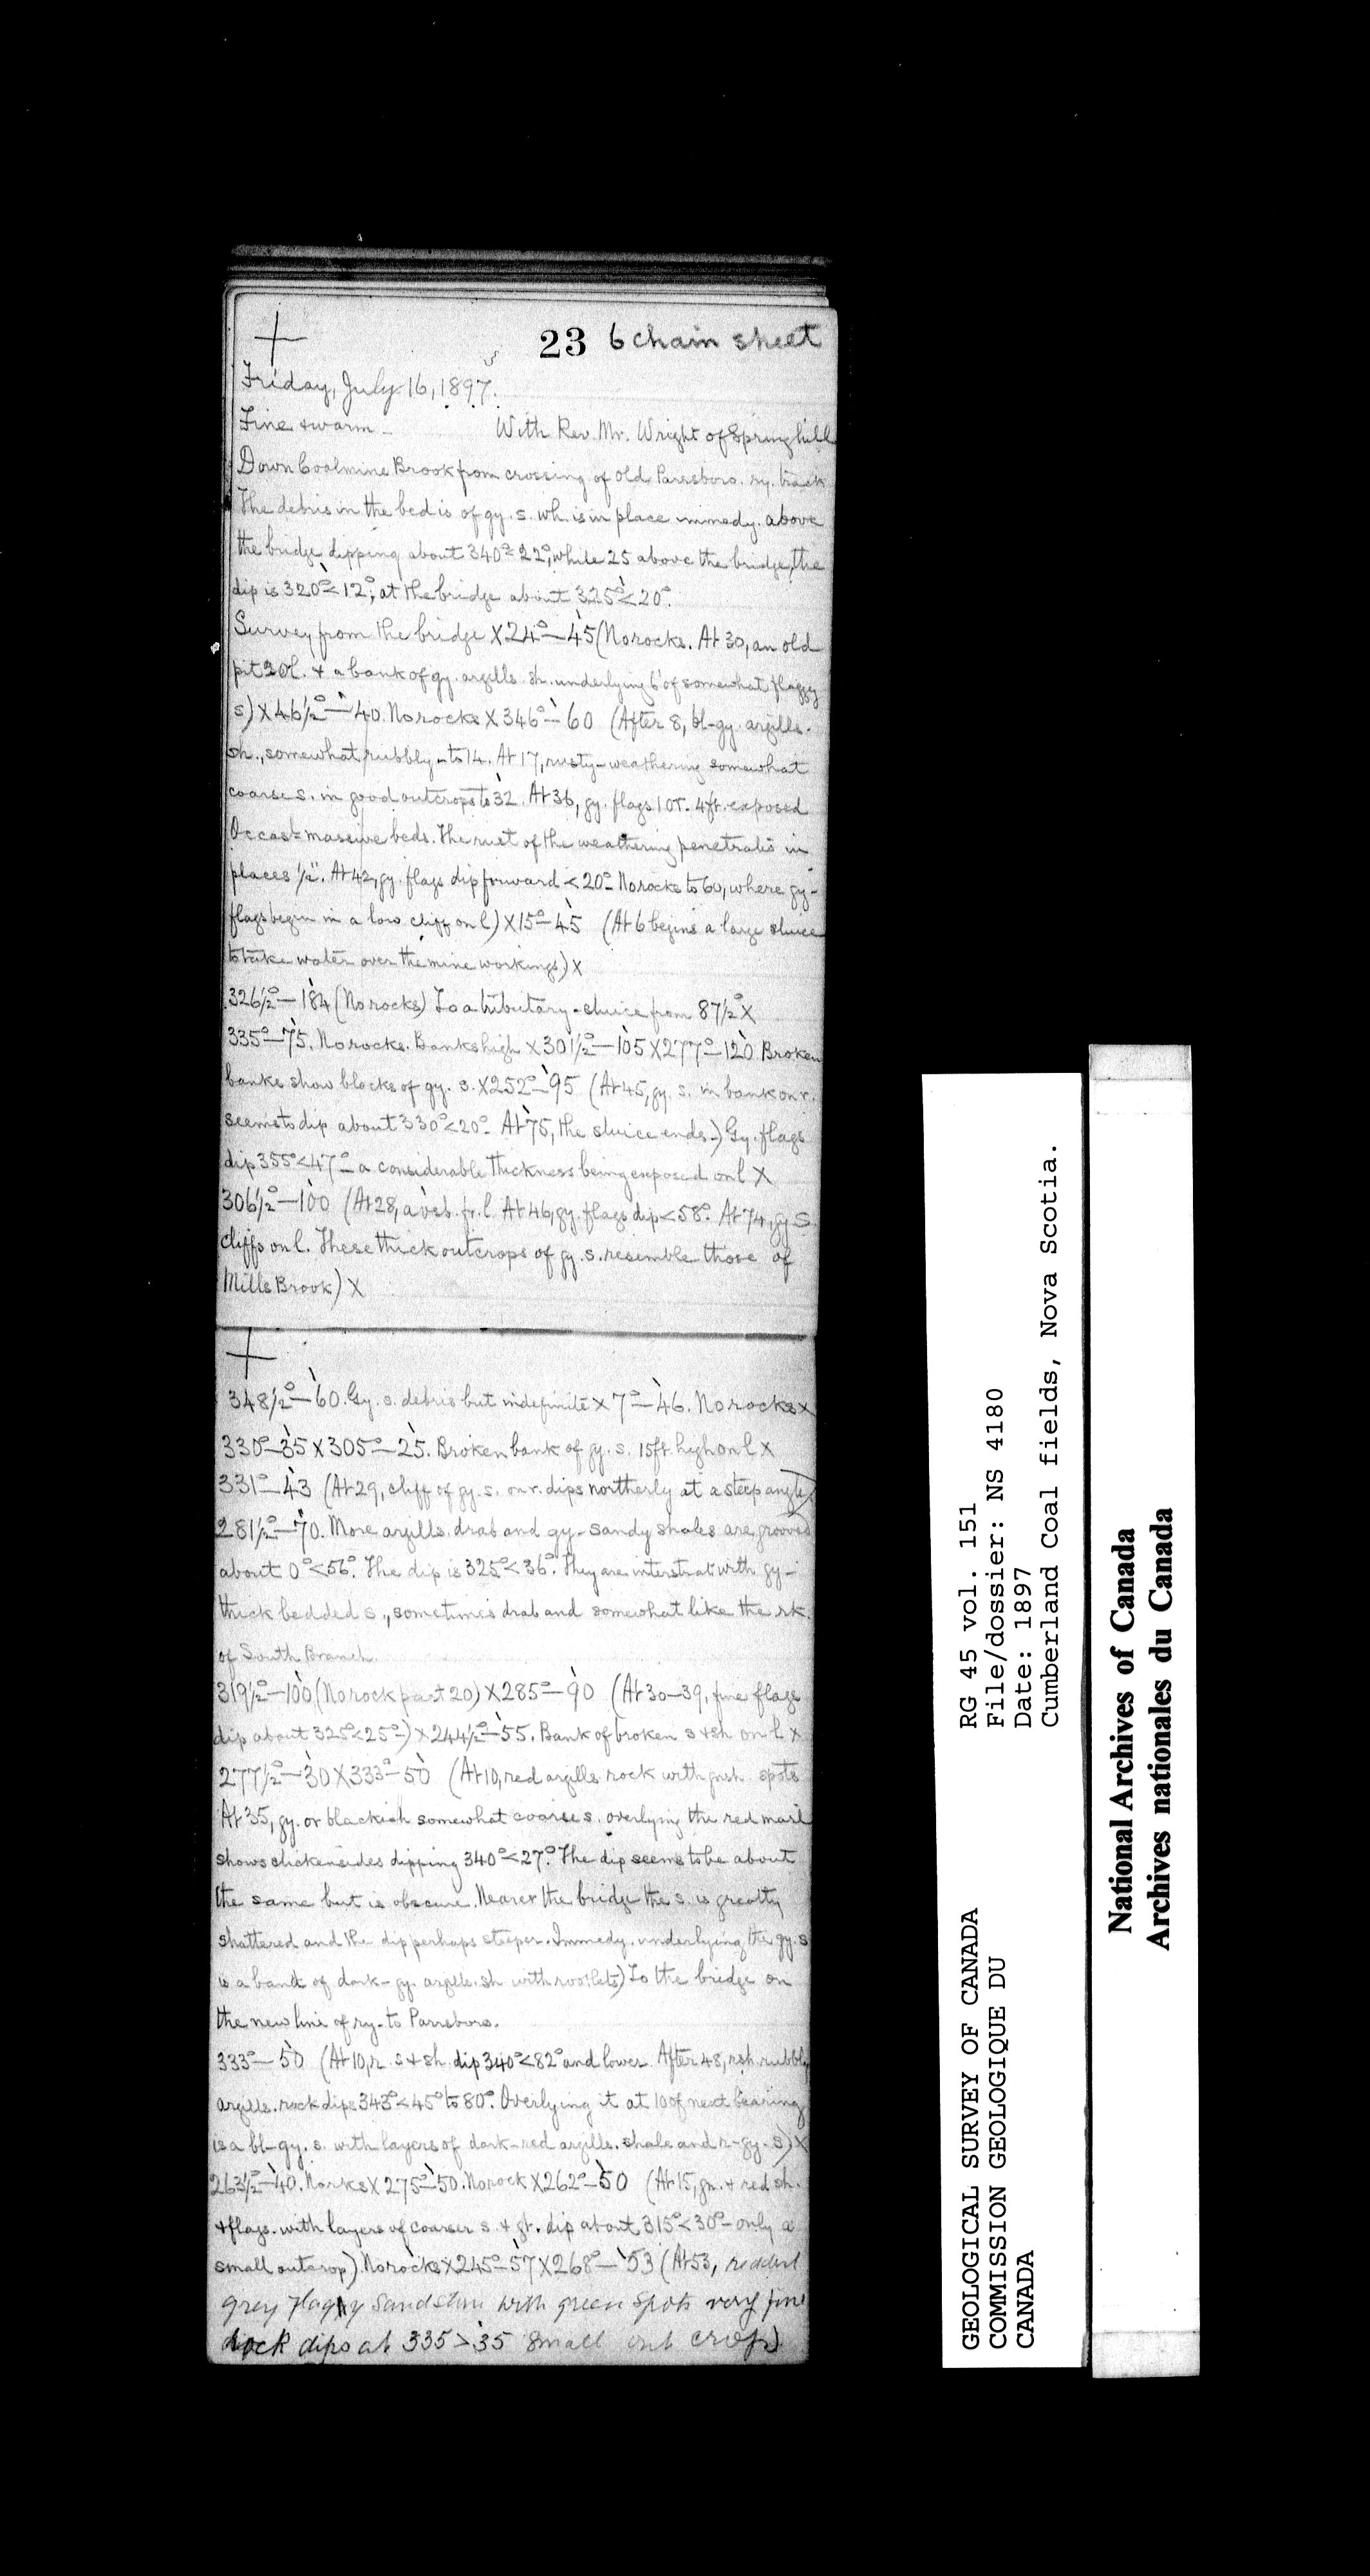 23 6 chain sheet
Friday, July 16, 1897.
Fine & warm - With Rev. Mr. Wright of Springhill
Down Coalmine Brook from crossing of old Parrsboro. ry. track
The debris in the bed is of gy. s. wh. is in place immedy. above
the bridge dipping about 340°<22°, while 25 above the bridge, the
dip is 320°<12°; at the bridge about 325°<20°.
Survey from the bridge X 24°—45 (No rocks. At 30, an old
pit 20 l. & a bank of gy. argills. sh. underlying 6' of somewhat flaggy
s) X 46½°—40. No rocks X 346°—60 (After 8, bl-gy. argills.
sh., somewhat rubbly - to 14. At 17, rusty-weathering somewhat
coarse s. in good outcrops to 32. At 36, gy. flags 10r. 4ft. exposed
Occas- massive beds. The rust of the weathering penetrates in
places ½". At 42, gy. flags dip forward <20°- No rocks to 60, where gy-
flags begin in a low cliff on l) X 15°—45 (At 6 begins a large sluice
to take water over the mine workings) X
326½°—184 (No rocks) To a tributary-sluice from 87½° X
335°—75. No rocks. Banks high X 301½°—105 X 277°—120 Broken
banks show blocks of gy. s. X 252°—95 (At 45, gy. s. in bank on r.
seems to dip about 330°<20°- At 75, the sluice ends.) Gy. flags
dip 355°<47°- a considerable thickness being exposed on l X
306½°—100 (At 28, a vsb. fr. l. At 46, gy. flags dip <58°. At 74, gy s.
cliffs on l. These thick outcrops of gy. s. resemble those of
Mills Brook) X
348½°—60. Gy. s. debris but indefinite X 7°—46. No rocks X
330°—35 X 305°—25. Broken bank of gy. s. 15ft high on l X
331°—43 (At 29, cliff of gy. s. on r. dips northerly at a steep angle)
281½°—70. More argills. drab and gy- sandy shales are grooved
about 0°<56°. The dip is 325°<36°. They are interstrat. with gy-
thick bedded s., sometimes drab and somewhat like the rk.
of South Branch.
319½°—100 (No rock past 20) X 285°—90 (At 30-39, fine flags
dip about 325°<25°-) X 244½°—55. Bank of broken s & sh on l X
277½°—30 X 333°—50 (At 10, red argills rock with gnsh. spots
At 35, gy. or blackish somewhat coarse s. overlying the red marl
shows slickensides dipping 340°<27°. The dip seems to be about
the same but is obscure. Nearer the bridge the s. is greatly
shattered and the dip perhaps steeper. Immedy. underlying the gy. s
is a band of dark-gy. argills. sh with rootlets) To the bridge on
the new line of ry. to Parrsboro.
333°—50 (At 10, r. s & sh. dip 340°<82° and lower. After 48, rsh. rubbly
argills. rock dips 343°<45° to 80°. Overlying it at 10 of next bearing
is a bl-gy. s. with layers of dark-red argills. shale and r-gy- s) X
263½°—40. No rks X 275°—50. No rock X 262°—50 (At 15, gn. & red sh.
& flags. with layers of coarser s. & gt. dip about 315°<30°- only a
small outcrop). No rocks X 245°—57 X 268°—53 (At 53, reddish
grey flaggy Sandstone with green spots very fine
rock dips at 335 > 35 small out crop)
RG 45 vol. 151
File/dossier: NS 4180
Date: 1897
Cumberland Coal fields, Nova Scotia.
GEOLOGICAL SURVEY OF CANADA
COMMISSION GEOLOGIQUE DU
CANADA
National Archives of Canada
Archives nationales du Canada